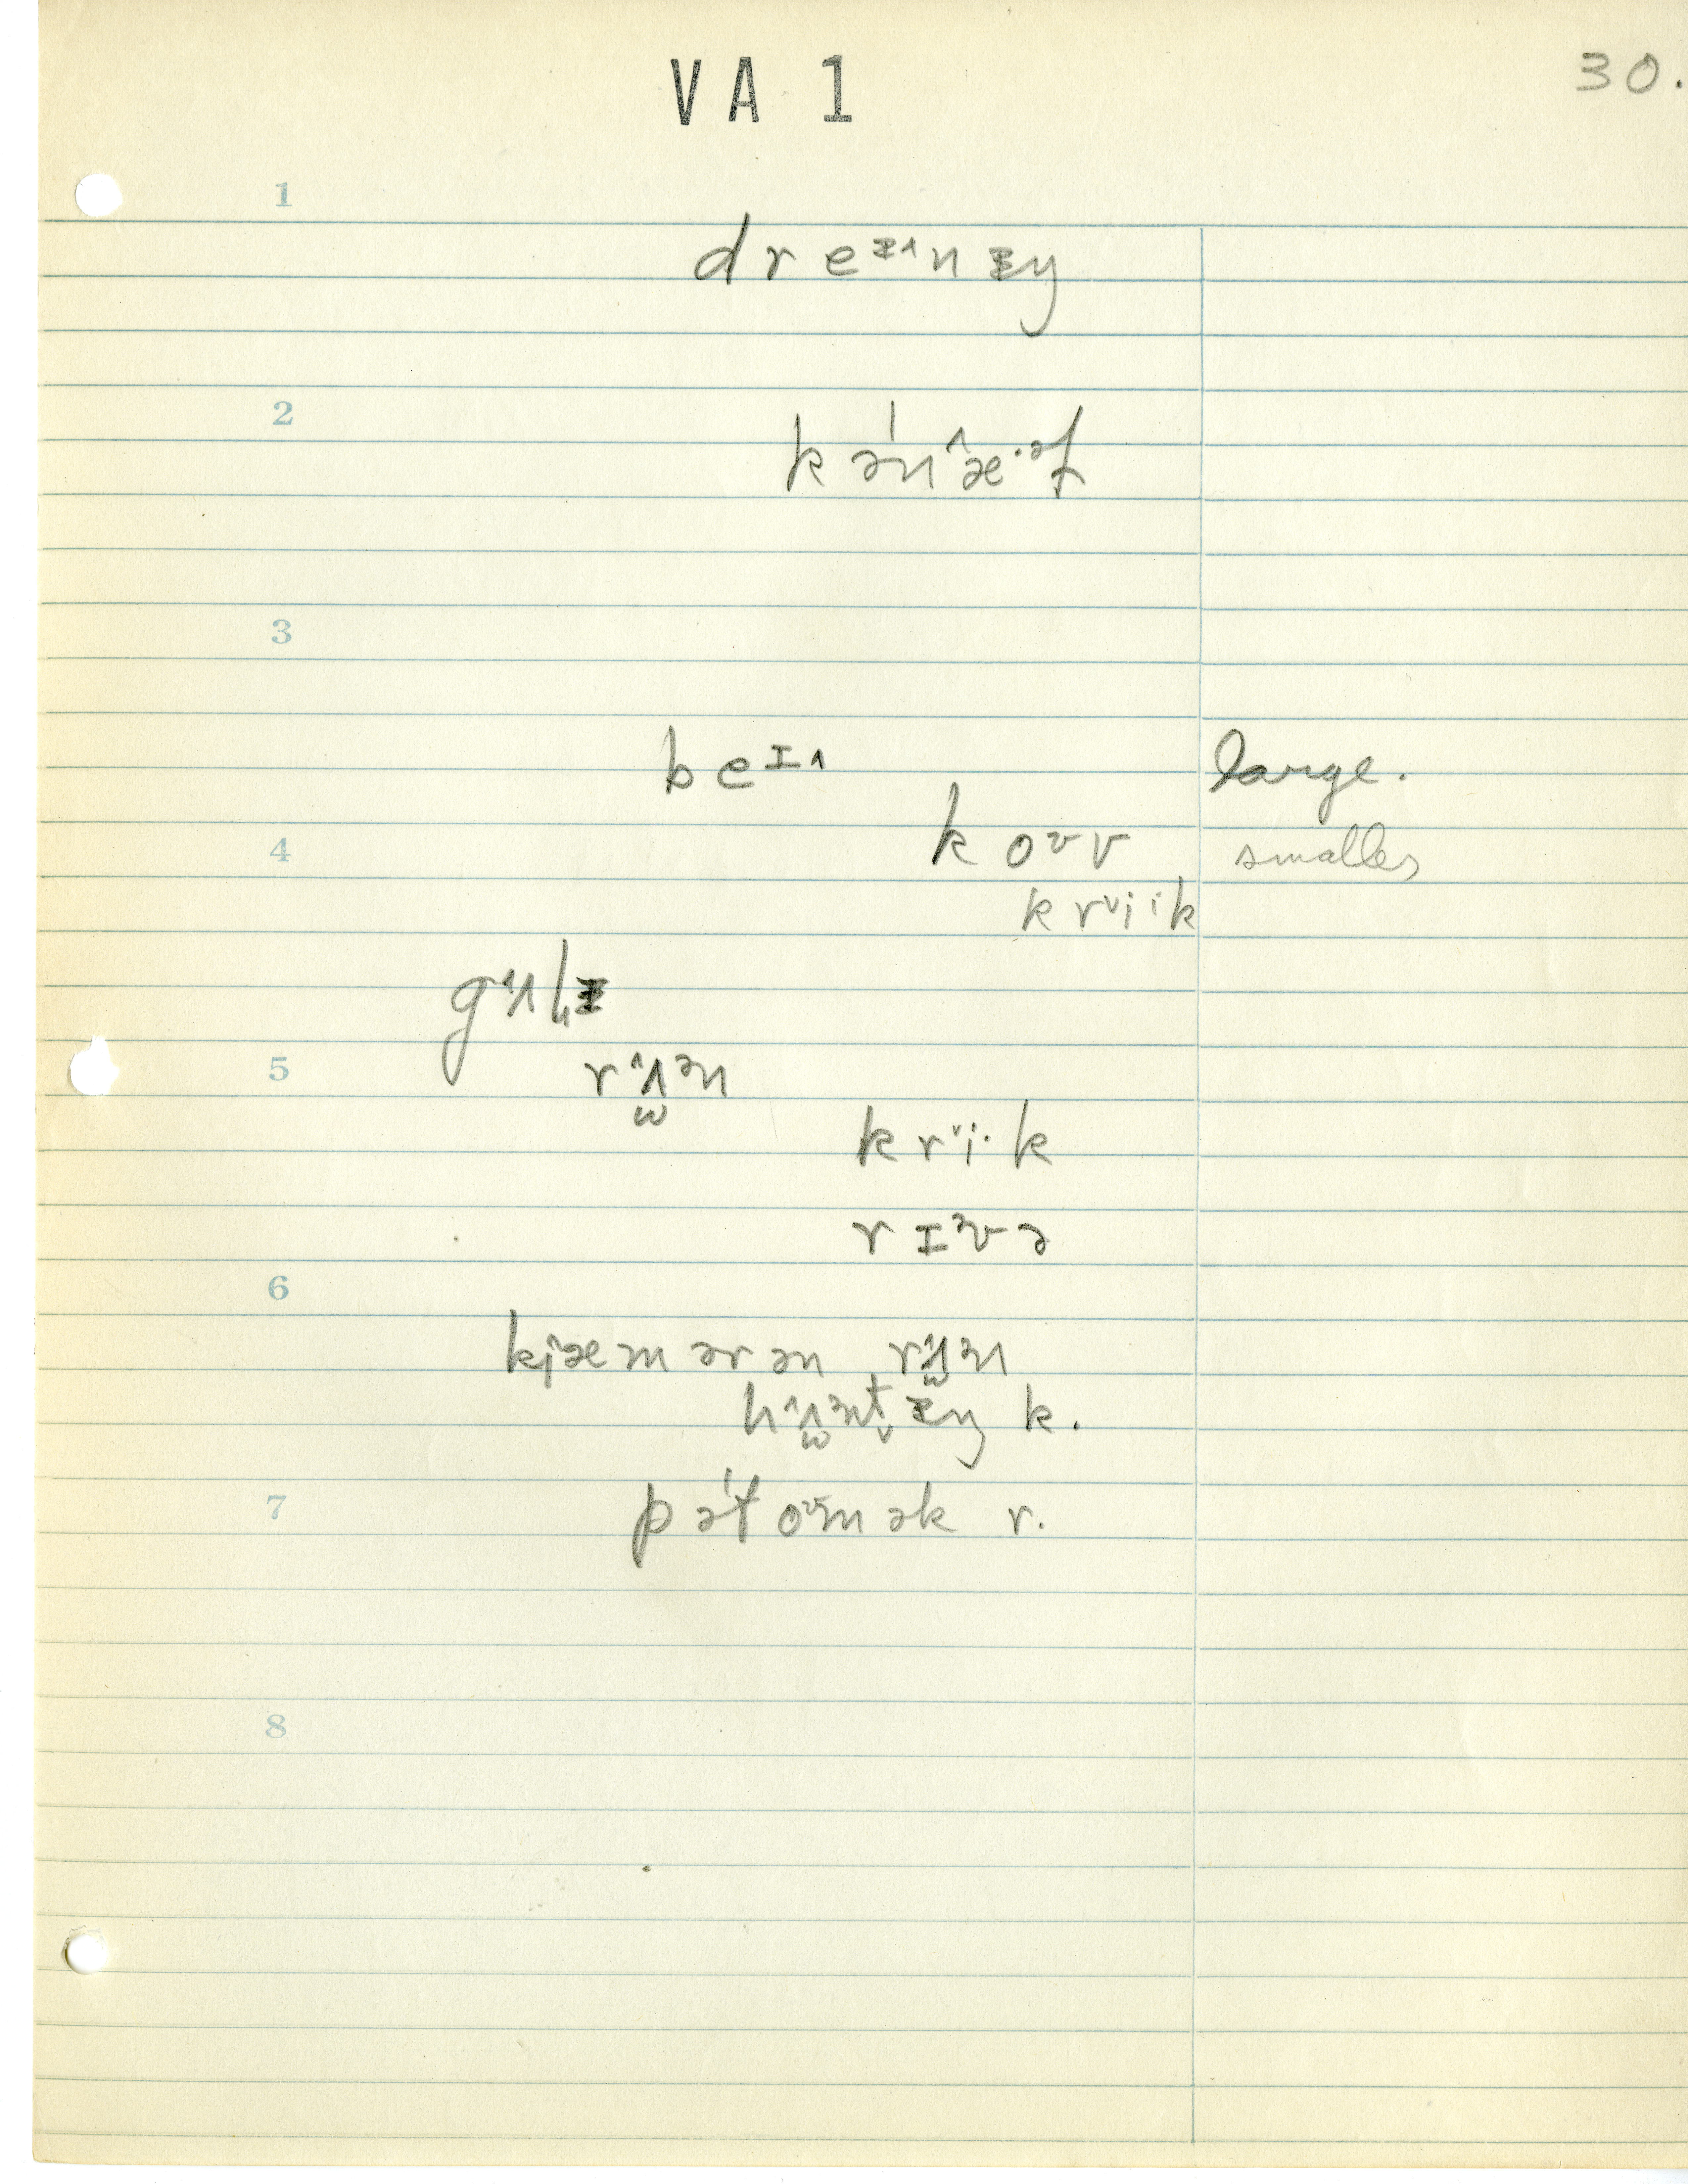 VA 1
30.
1
dreᶦ˄nɪŋ
2
kə'n˄æ·ᵊl
3
beᶦ˄ large.
4
koᶷv smaller
krᵛi·ik
g˄ʌlɪ
5
r˄ʌ̫ᵊn
krᵛi·k
rɪᵊvə
6
kj˄æmərən r˄ʌ̫ᵊn
h˄ʌ̫ᵊnt̬ɪŋ k.
7
pə'toᶷmək r.
8